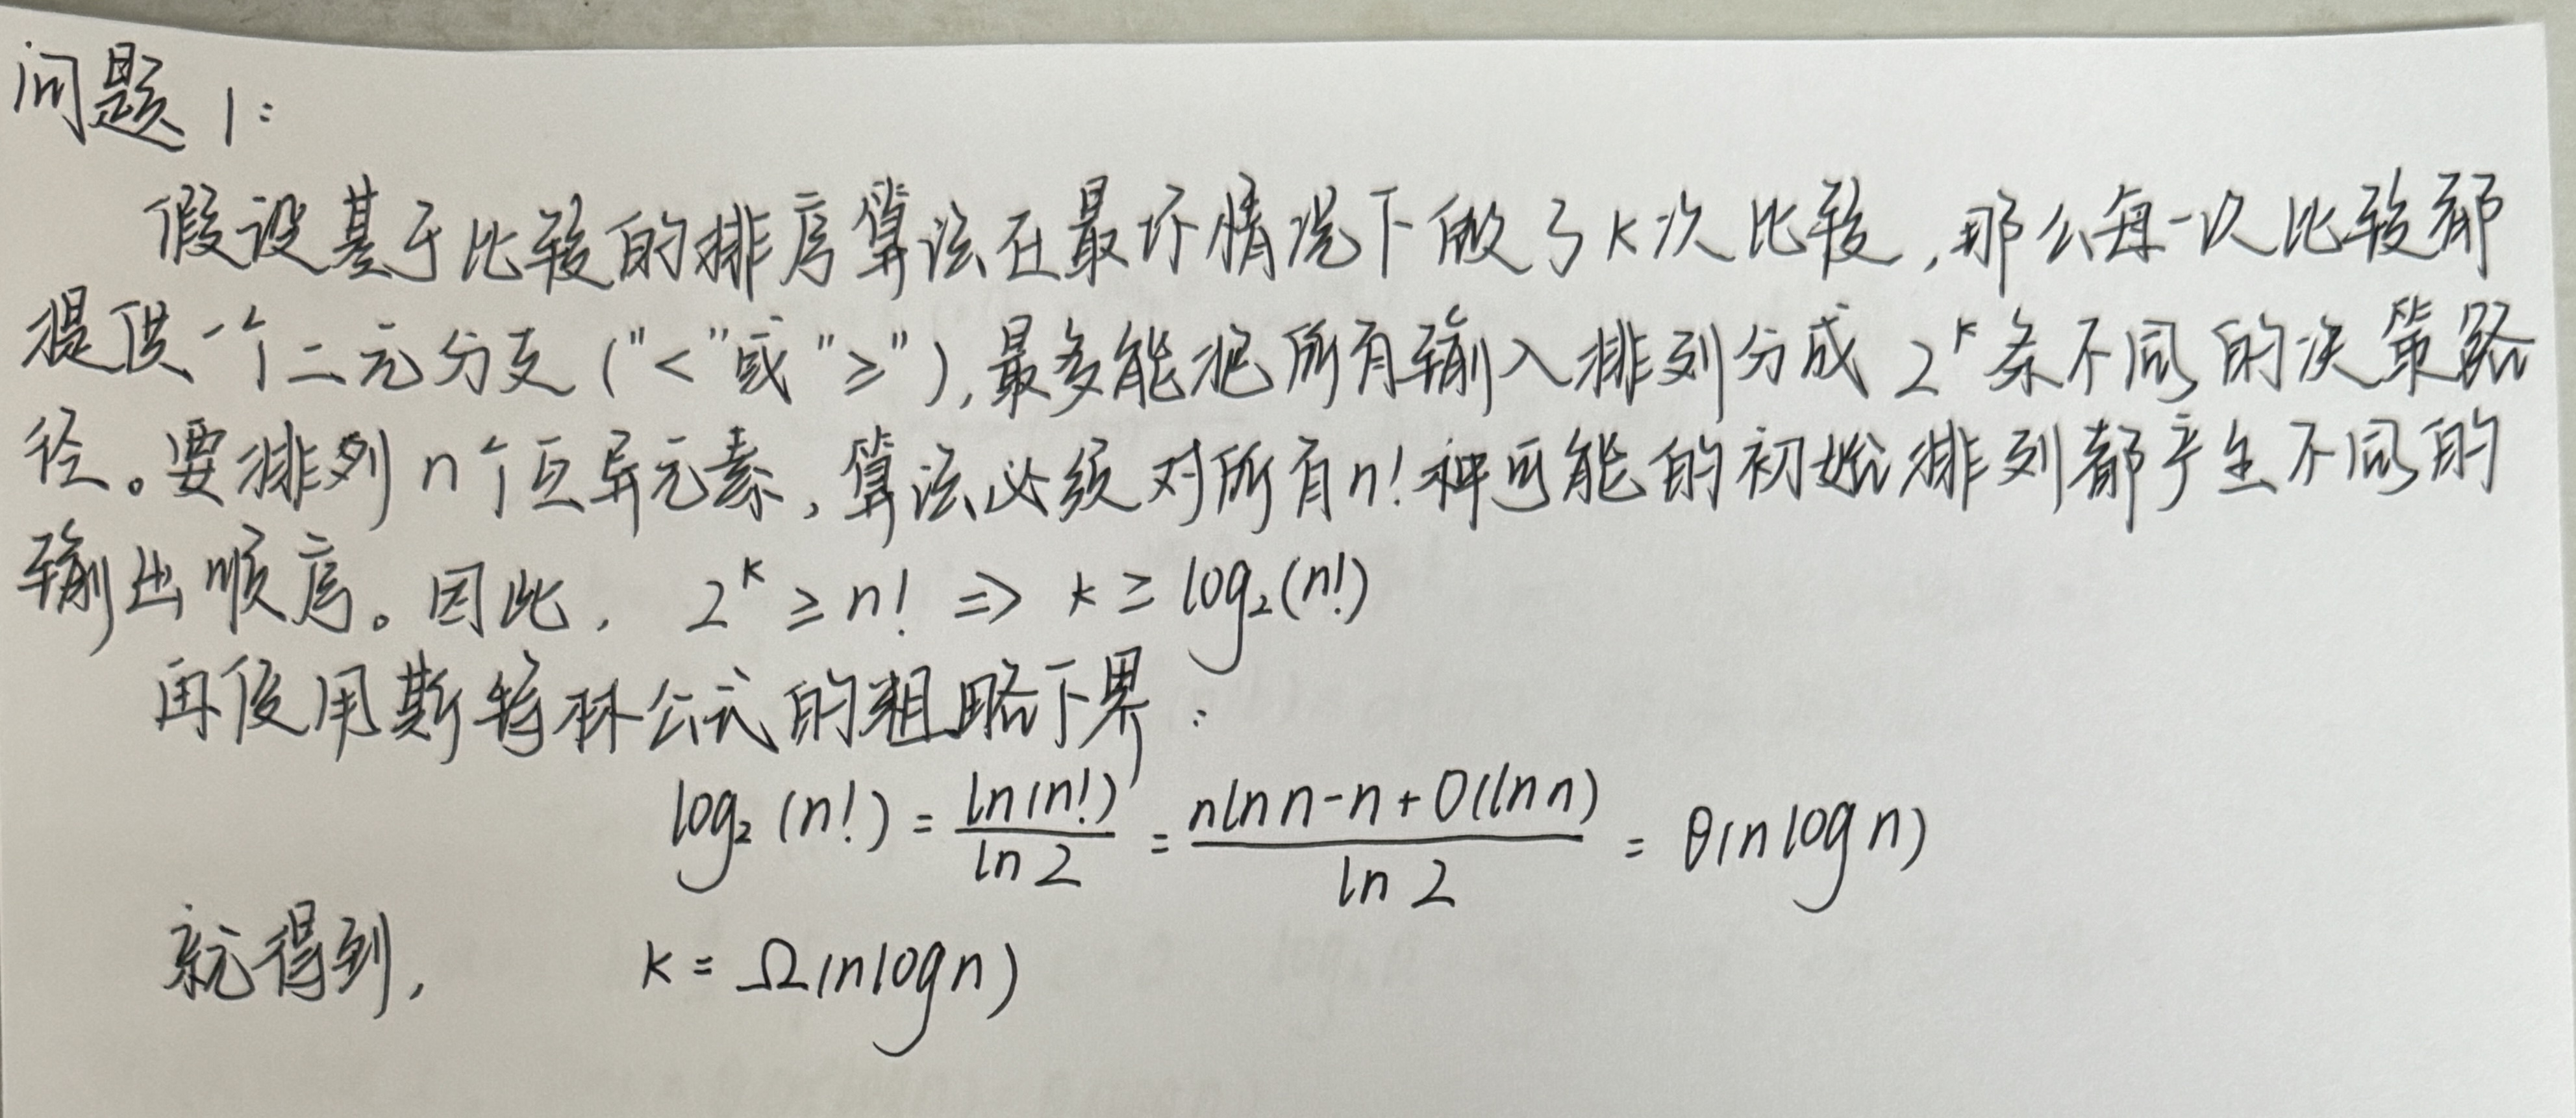 问题 1:
假设基于比较的排序算法在最坏情况下做了k次比较,那么每一次比较都
提供一个二元分支("<"或"≥"),最多能把所有输入排列分成 2^k 条不同的决策路
径。要排列n个互异元素,算法必须对所有n!种可能的初始排列都产生不同的
输出顺序。因此, 2^k ≥ n! => k ≥ log₂(n!)
再使用斯特林公式的粗略下界:
log₂(n!) = ln(n!) / ln 2 = n ln n - n + O(ln n) / ln 2 = θ(n log n)
就得到, k = Ω(n log n)